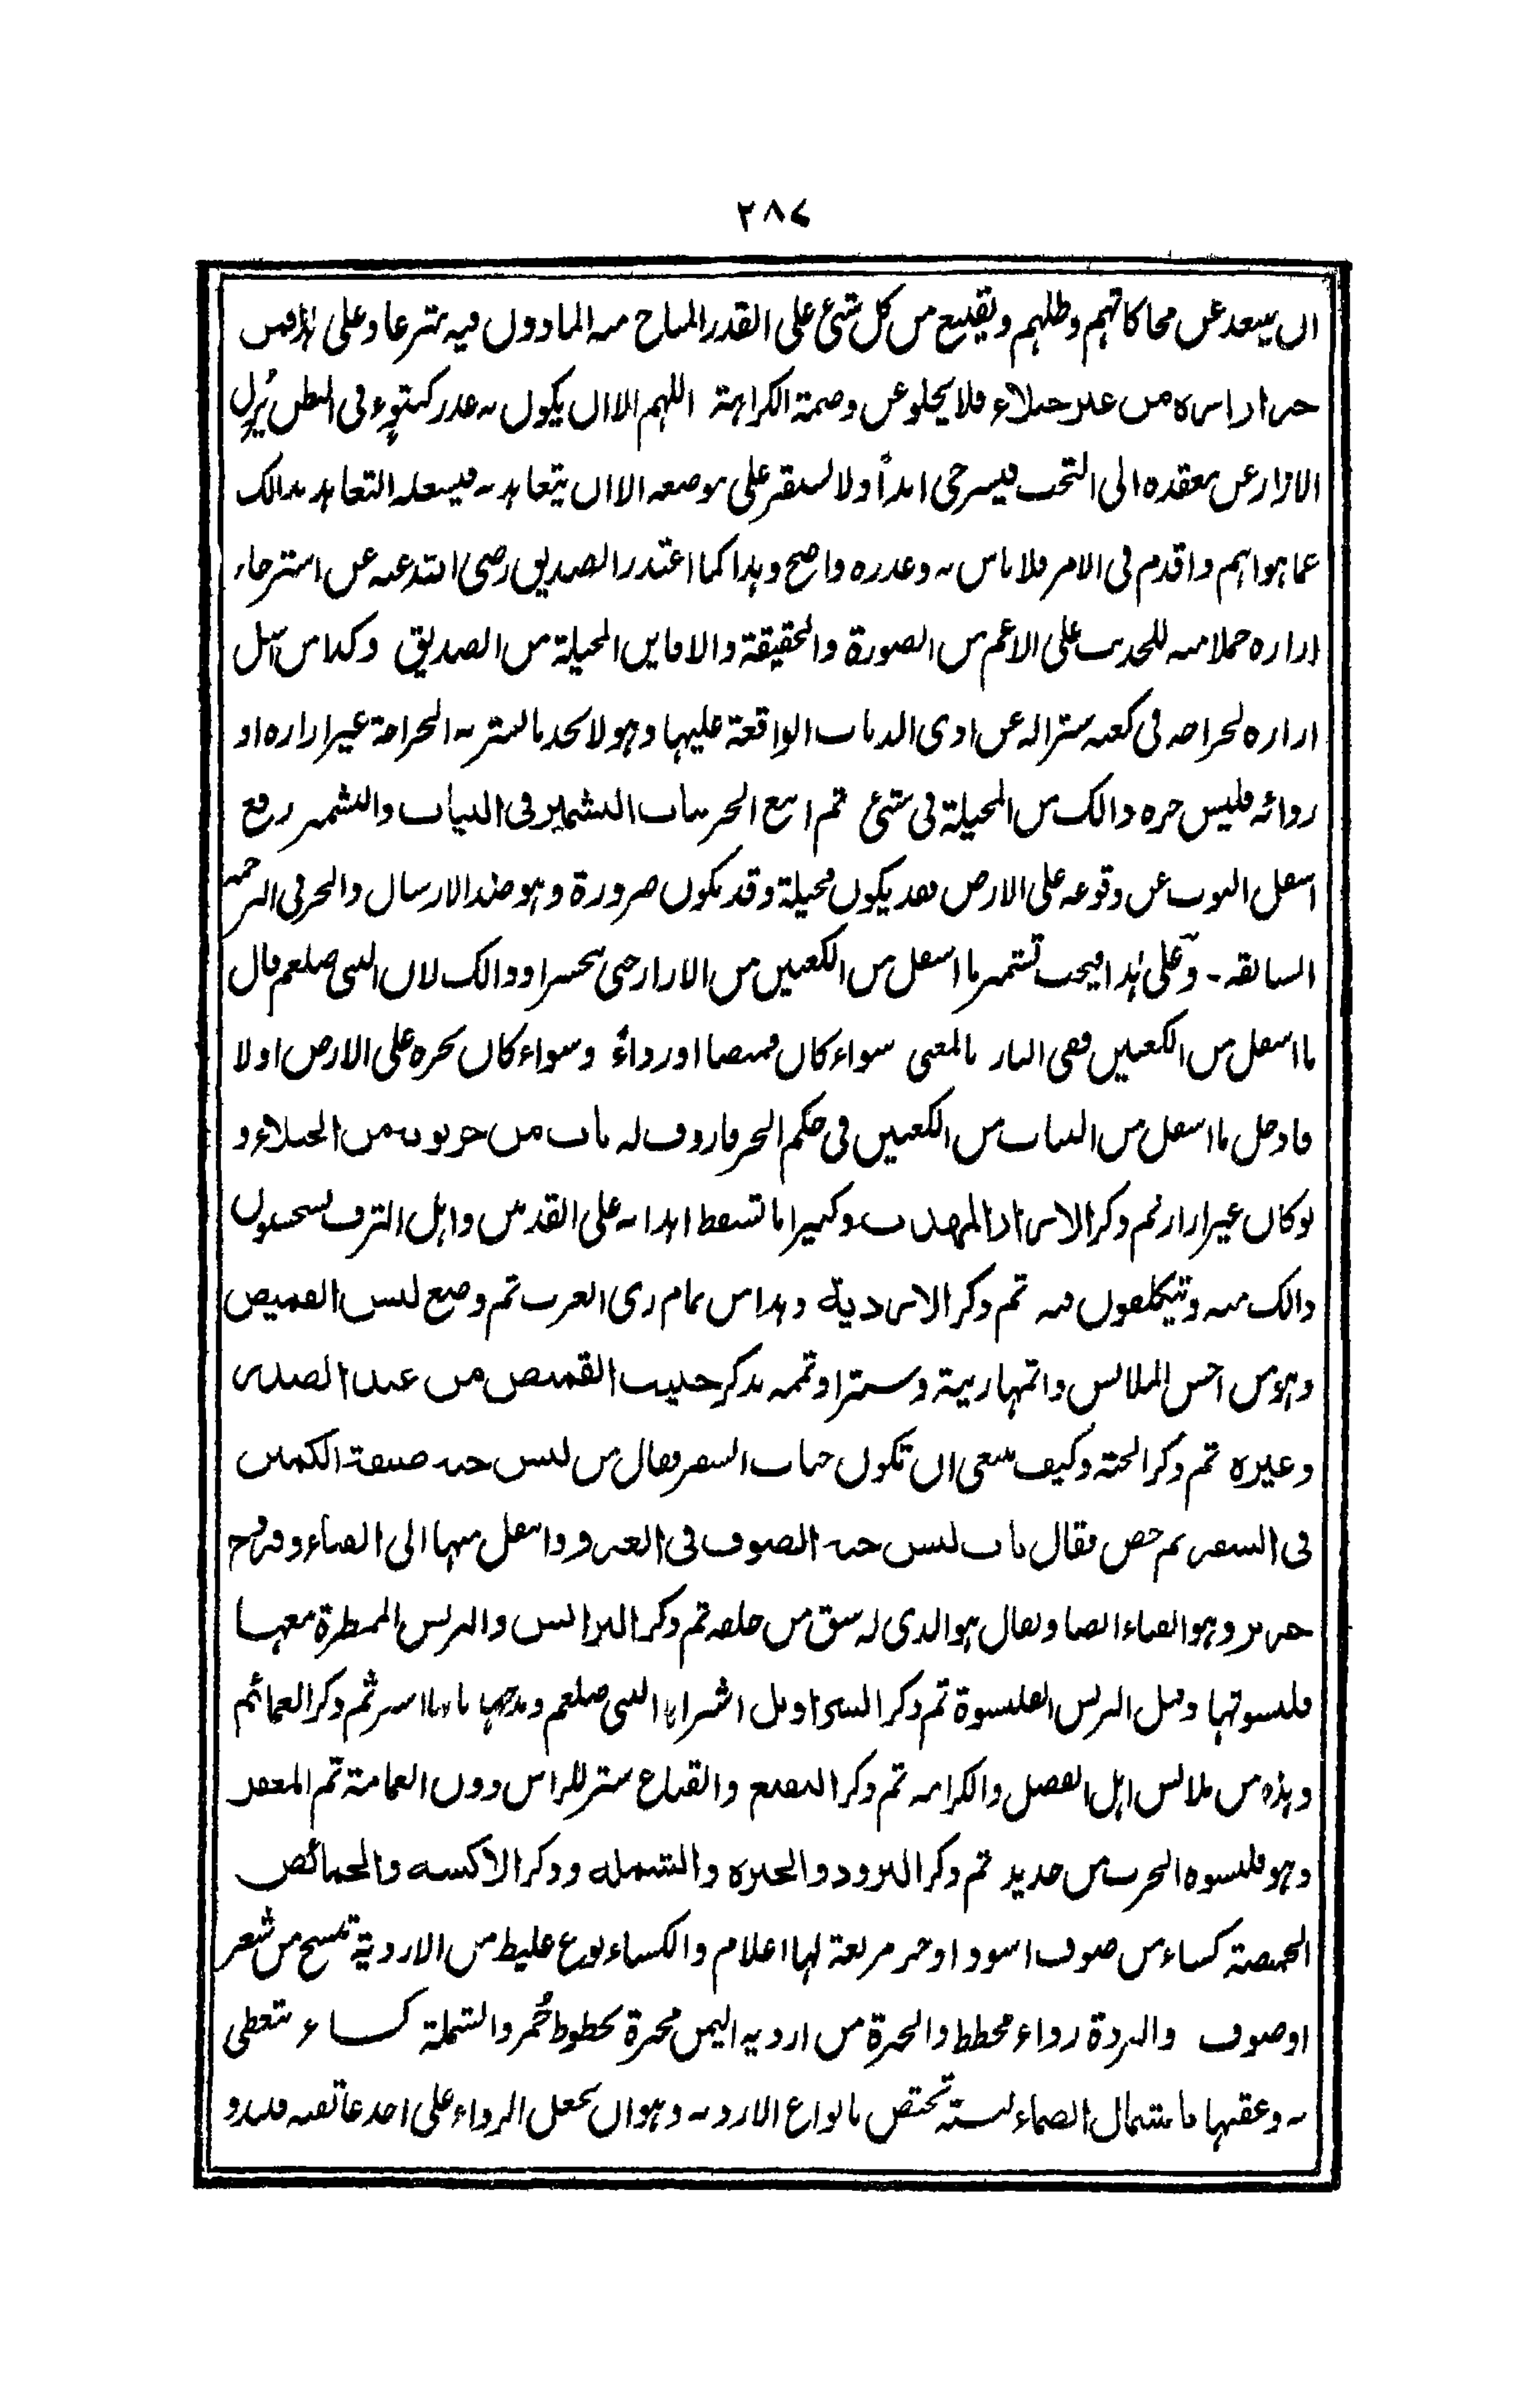 ٢٨٧
ان يبعد عن محاكاتهم وظلهم ويقنع من كل شئ على القدر المباح منه الماذون فيه شرعا وعلى هذا فمن
جر ازاره من غير خيلاء فلا يخلو عن وصمة الكراهة اللهم الا ان يكون به عذر كنتوء في البطن يُزل
الازار عن معقده الى التحت فيسترخى ابداً ولا يستقر على موضعه الا ان يتعاهد به فيشغله التعاهد بذالك
عما هو اهم واقدم فى الامر فلا باس به وعذره واضح وهذا كما اعتذر الصديق رضى الله عنه عن استرخاء
ازاره حملا منه للحديث على الاعم من الصورة والحقيقة والا فاين المخيلة من الصديق وكذا من اسبل
ازاره لجراحه فى كعبه سترا له عن اذى الذباب الواقعة عليها وهو لا يجد ما يستر به الجراحة غير ازاره او
ردائه فليس جره ذالك من المخيلة فى شئ ثم اتبع الجر بباب التشمير فى الثياب والتشمير رفع
اسفل الثوب عن وقوعه على الارض فقد يكون مخيلة وقد يكون ضرورة وهو ضد الارسال والجر فى الترجمة
السابقة - وعلى هذا فيجب تشمير ما اسفل من الكعبين من الازار حتى ينحسر او ذالك لان النبى صلعم قال
ما اسفل من الكعبين ففى النار بالمعنى سواء كان قميصا او رداءً وسواء كان يجره على الارض او لا
فادخل ما اسفل من الثياب من الكعبين فى حكم الجر فاردف له باب من جر ثوبه من الخيلاء و
لو كان غير ازار ثم ذكر الازار المهذب وكثيرا ما تسقط اهدابه على القدمين واهل الترف يستحسنون
ذالك منه ويتكلفون فيه ثم ذكر الاردية وهذا من تمام زى العرب ثم وضع لبس القميص
وهو من احسن الملابس واتمها زينة وسترا وتممه بذكر جيب القميص من عند الصدر
وغيره ثم ذكر الجبة وكيف ينبغى ان تكون جباب السفر فقال من لبس جبة ضيقة الكمين
فى السفر ثم خص فقال باب لبس جبة الصوف فى الغزو وانتقل منها الى القباء وفروج
حرير وهو القباء ايضا ويقال هو الذى له شق من خلفه ثم ذكر البرانس والبرنس الممطرة معها
قلنسوتها وقيل البرنس القلنسوة ثم ذكر السراويل اشتراها النبى صلعم ومدحها بانها استر ثم ذكر العمائم
وهذه من ملابس اهل الفضل والكرامه ثم ذكر التقنع والقناع ستر للراس دون العمامة ثم المغفر
وهو قلنسوه الحرب من حديد ثم ذكر البرود والحبره والشمله وذكر الاكسيه والخمائص
الخميصة كساء من صوف اسود او خز مربعة لها اعلام والكساء نوع غليظ من الاردية تنسج من شعر
او صوف والبردة رداء مخطط والحبرة من اردية اليمن محبرة بخطوط حُمر والشملة كساء يتغطى
به وعقبها باشتمال الصماء لبسته تختص بانواع الارديه وهو ان يجعل الرداء على احد عاتقيه فيبدو